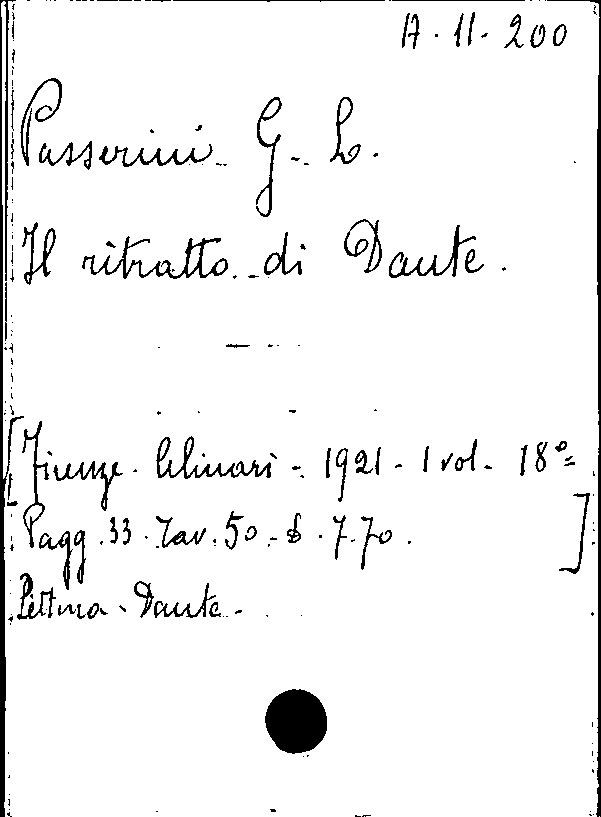 A. 11. 200
Passerini G. L.
Il ritratto di Dante.
[Firenze. Alinari - 1921 - 1 vol - 18º=
Pagg. 33. Tav. 50 - £. 7.70. ]
Pittura - Dante -